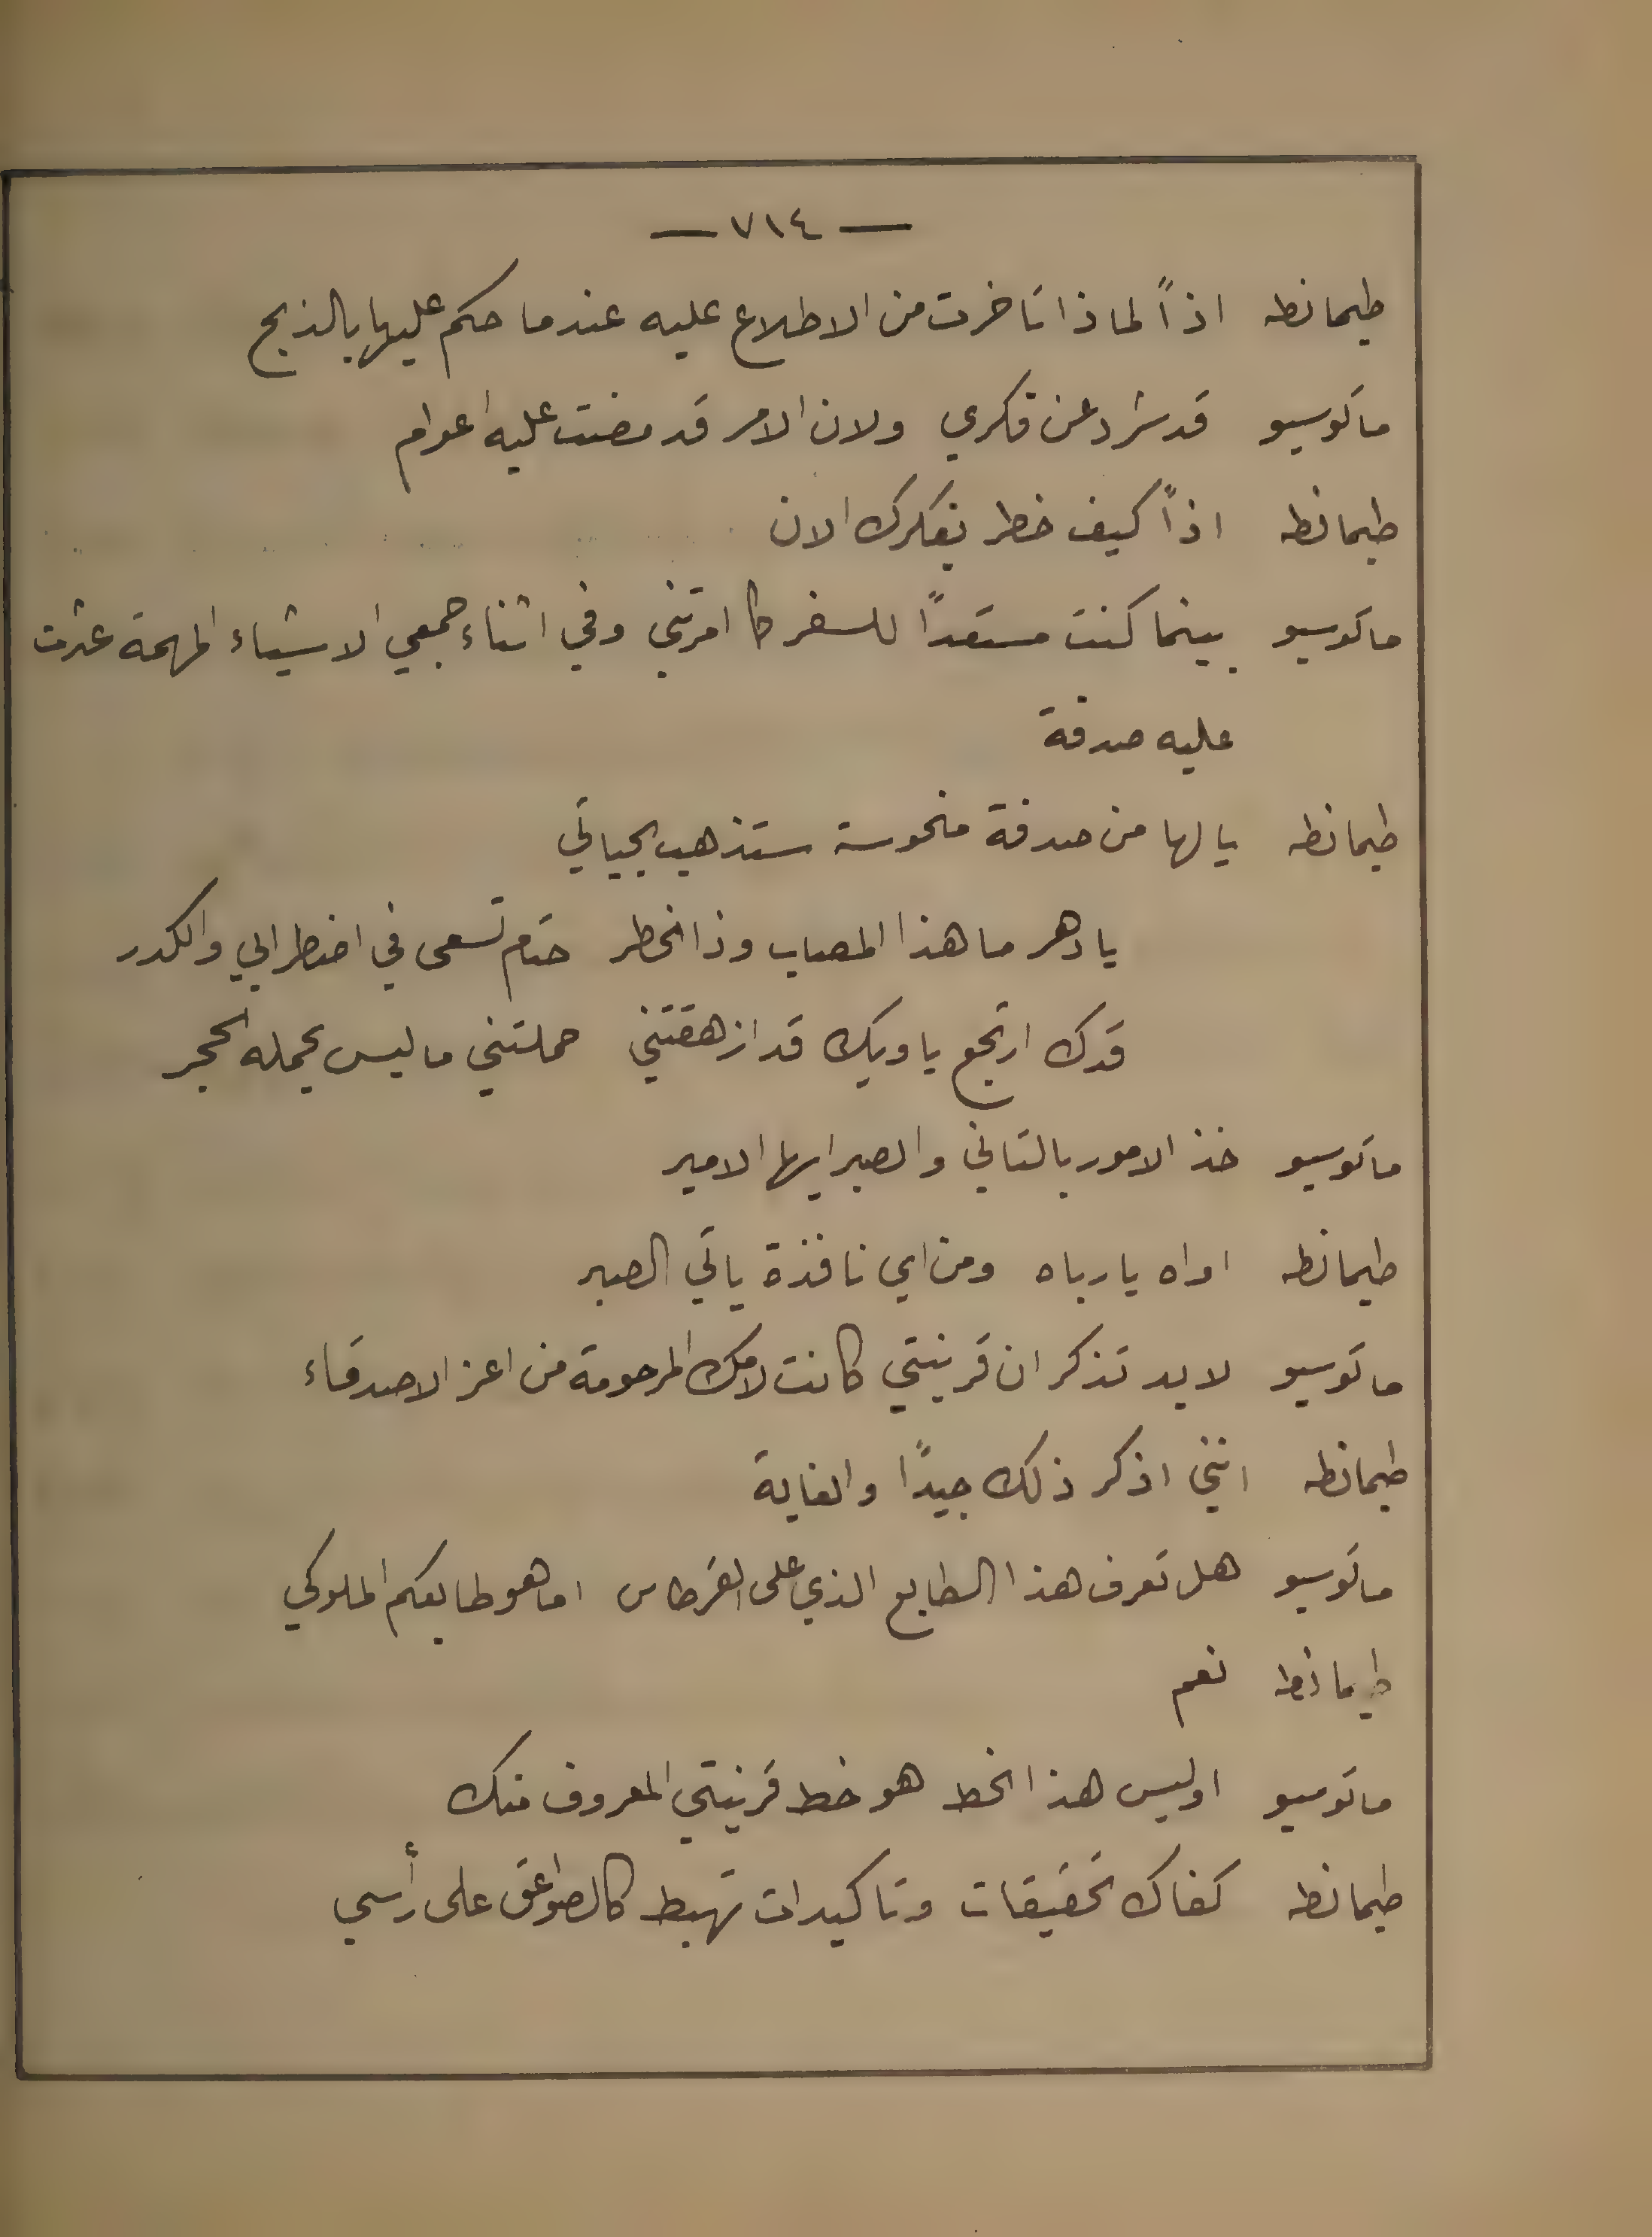 — ٧١٤ —
طيمانطه اذاً لماذا تاخرت من الاطلاع عليه عندما حكم عليها بالذبح
ماتوسيو قد شرد عن فكري ولان الامر قد مضت عليه اعوام
طيمانطه اذاً كيف خطر بفكرك الان
ماتوسيو بينما كنت مستعداً للسفر كما امرتني وفي اثناء جمعي الاشياء المهمة عثرت
عليه صدفة
طيمانطه يا لها من صدفة منحوسة ستذهب بحياتي
يا دهر ما هذا المصاب وذا الخطر حتام تسعى في اضطرابي والكدر
قدك ارتجع يا ويك قد ازهقتني حملتني ما ليس يحمله الحجر
ماتوسيو خذ الامور بالتاني والصبر ايها الامير
طيمانطه اواه يا رباه ومن اي نافذة ياتي الصبر
ماتوسيو لا بد تذكر ان قرينتي كانت لامك المرحومة من اعز الاصدقاء
طيمانطه انني اذكر ذلك جيداً والغاية
ماتوسيو هل تعرف هذا الطابع الذي على القرطاس اما هو طابعكم الملوكي
طيمانطه نعم
ماتوسيو اوليس هذا الخط هو خط قرينتي المعروف منك
طيمانطه كفاك تحقيقات وتاكيدات تهبط كالصواعق على رأسي